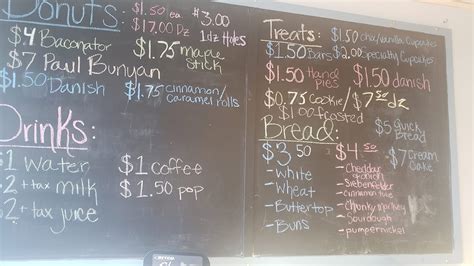 Donuts: $1.50 ea
$17.00 Dz
$3.00
1dz Holes
$4 Baconator
$1.75 maple stick
$7 Paul Bunyan
$1.50 Danish
$1.75 cinnamon/
caramel rolls
Drinks:
$1 water
$2 + tax milk
$2 + tax juice
$1 coffee
$1.50 pop
Treats: $1.50 cho/vanilla Cupcakes
$1.50 Bars $2.00 Specialty Cupcakes
$1.50 Hand pies
$1.50 danish
$0.75 Cookie/$7.50 dz
$1.00 frosted
Bread:
$5 Quick Bread
$7 Cream Cake
$3.50
- White
- Wheat
- Buttertop
- Buns
$4.50
- Cheddar
- Siebenfelder
- Cinnamon
- Chunky Monkey
- Sourdough
- pumpernickel